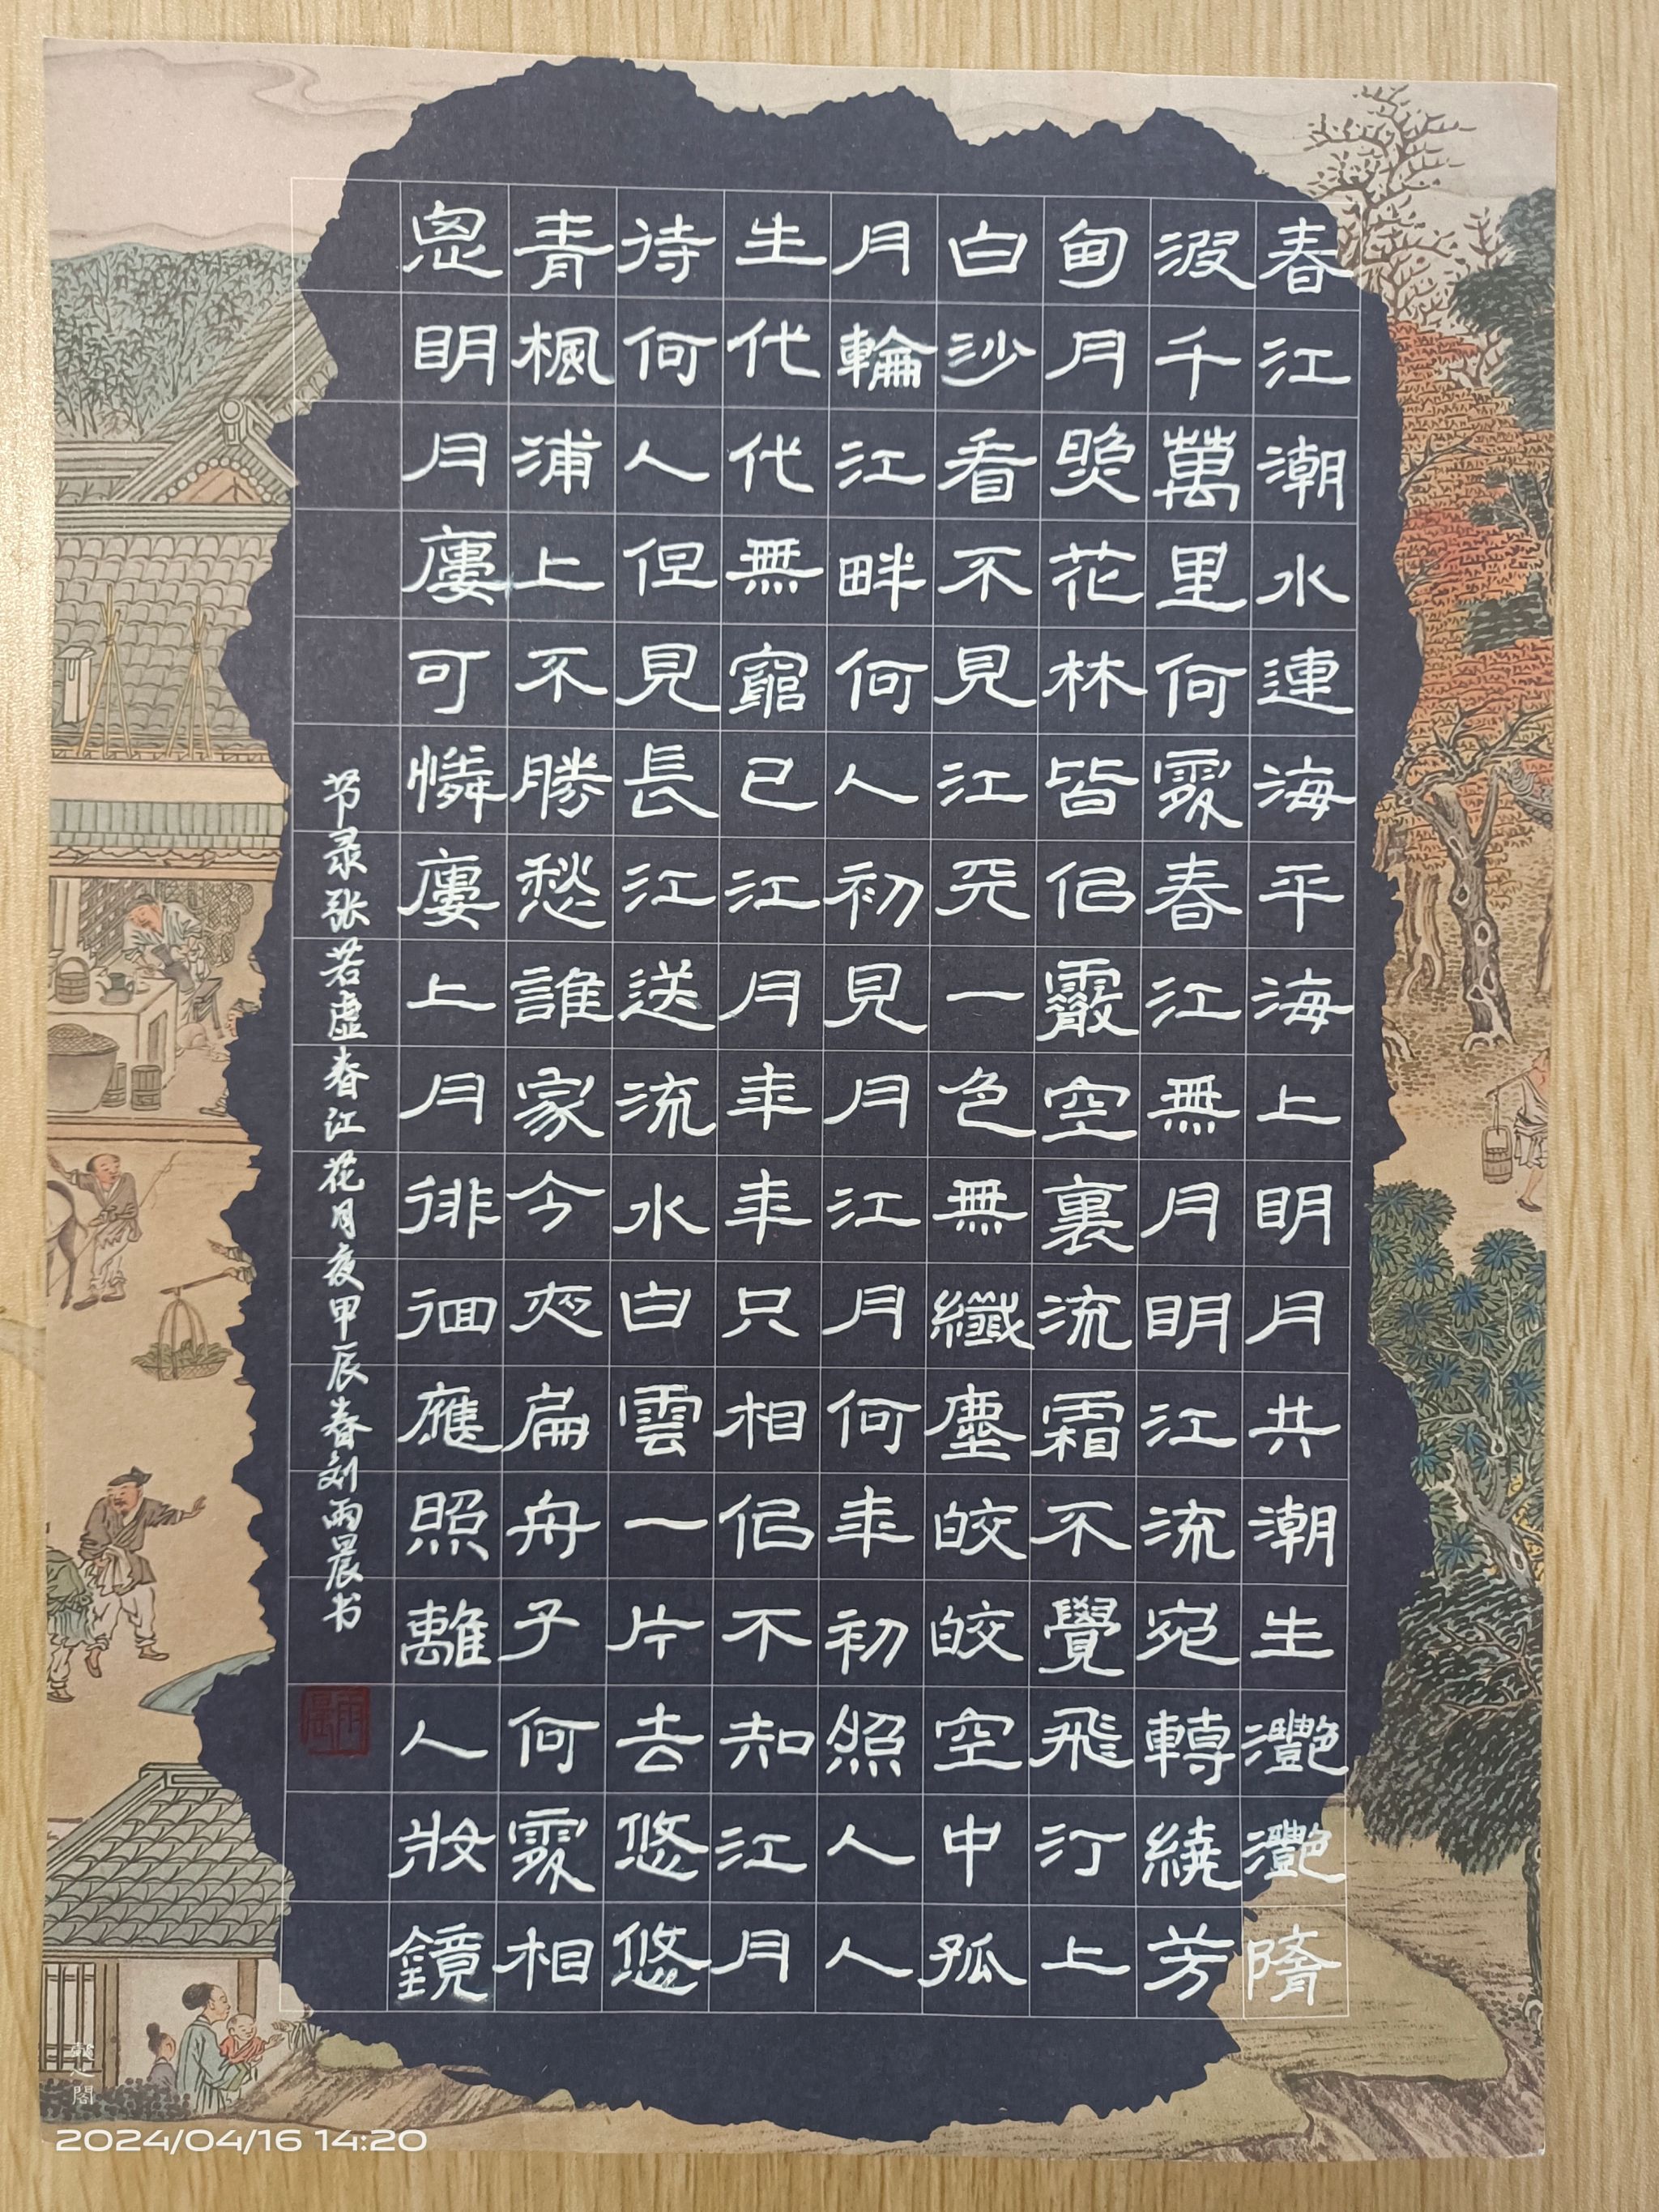 春江潮水連海平海上明月共潮生灩灩隋
波千萬里何處春江無月明江流宛轉繞芳
甸月照花林皆似霰空裏流霜不覺飛汀上
白沙看不見江天一色無纖塵皎皎空中孤
月輪江畔何人初見月江月何年初照人人
生代代無窮已江月年年只相似不知江月
待何人但見長江送流水白雲一片去悠悠
青楓浦上不勝愁誰家今夜扁舟子何處相
思明月廔可憐廔上月徘徊應照離人妝鏡
节录张若虚春江花月夜甲辰春刘雨晨书
雨晨
2024/04/16 14:20